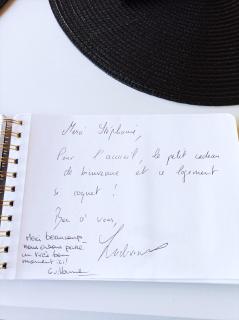 Merci Stéphanie,
Pour l'accueil, le petit cadeau
de bienvenue et ce logement
si coquet !
Bien à vous,
Merci beaucoup
nous avons passé
un très bon
moment ici!
Guillaume